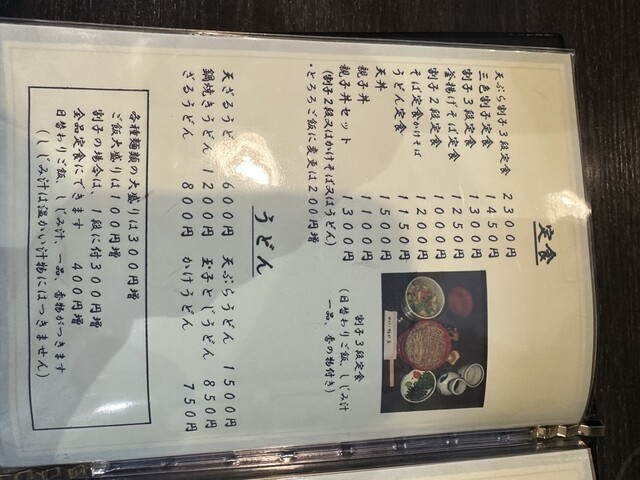 定食
天ぷら割子3段定食 2300円
三色割子定食 1450円
割子3段定食 1300円
釜揚げそば定食 1250円
割子2段定食 1000円
そば定食かけそば 1200円
うどん定食 1150円
天丼 1500円
親子丼 1100円
親子丼セット 1300円
(割子2段又はかけそば又はうどん)
・とろろご飯に変更は200円増
割子3段定食
(日替わりご飯、しじみ汁
一品、香の物付き)
うどん
天ざるうどん 600円 天ぷらうどん 1500円
鍋焼きうどん 1200円 玉子とじうどん 850円
ざるうどん 800円 かけうどん 750円
各種麺類の大盛りは300円増
ご飯大盛りは100円増
割子の場合は、1段に付300円増
全品定食にできます 400円増
日替わりご飯、しじみ汁、一品、香物がつきます
(しじみ汁は温かい汁物にはつきません)